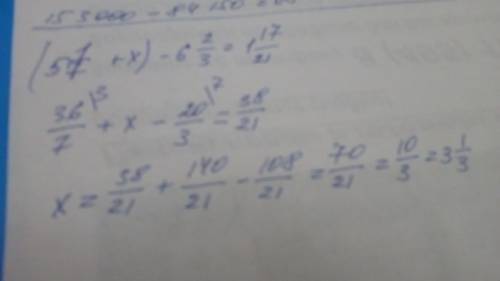 153000 - 84150 =
(5 1/7 + x) - 6 2/3 = 1 17/21
36/7 \3 + x - 20/3 \7 = 38/21
x = 38/21 + 140/21 - 108/21 = 70/21 = 10/3 = 3 1/3